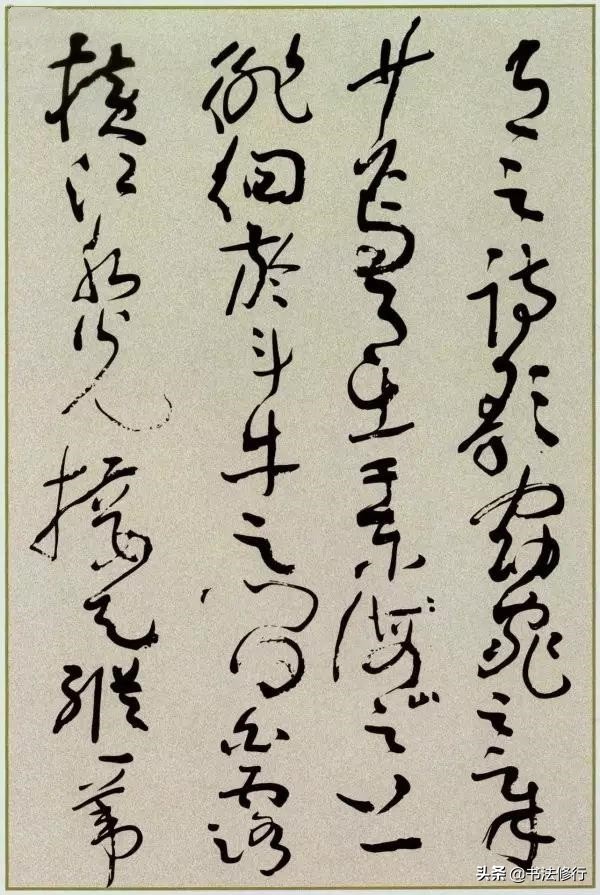 月之詩歌窈窕之章
少焉月出于東海山之上
徘徊於斗牛之間白露
橫江水光接天縱一葦
头条 @书法修行